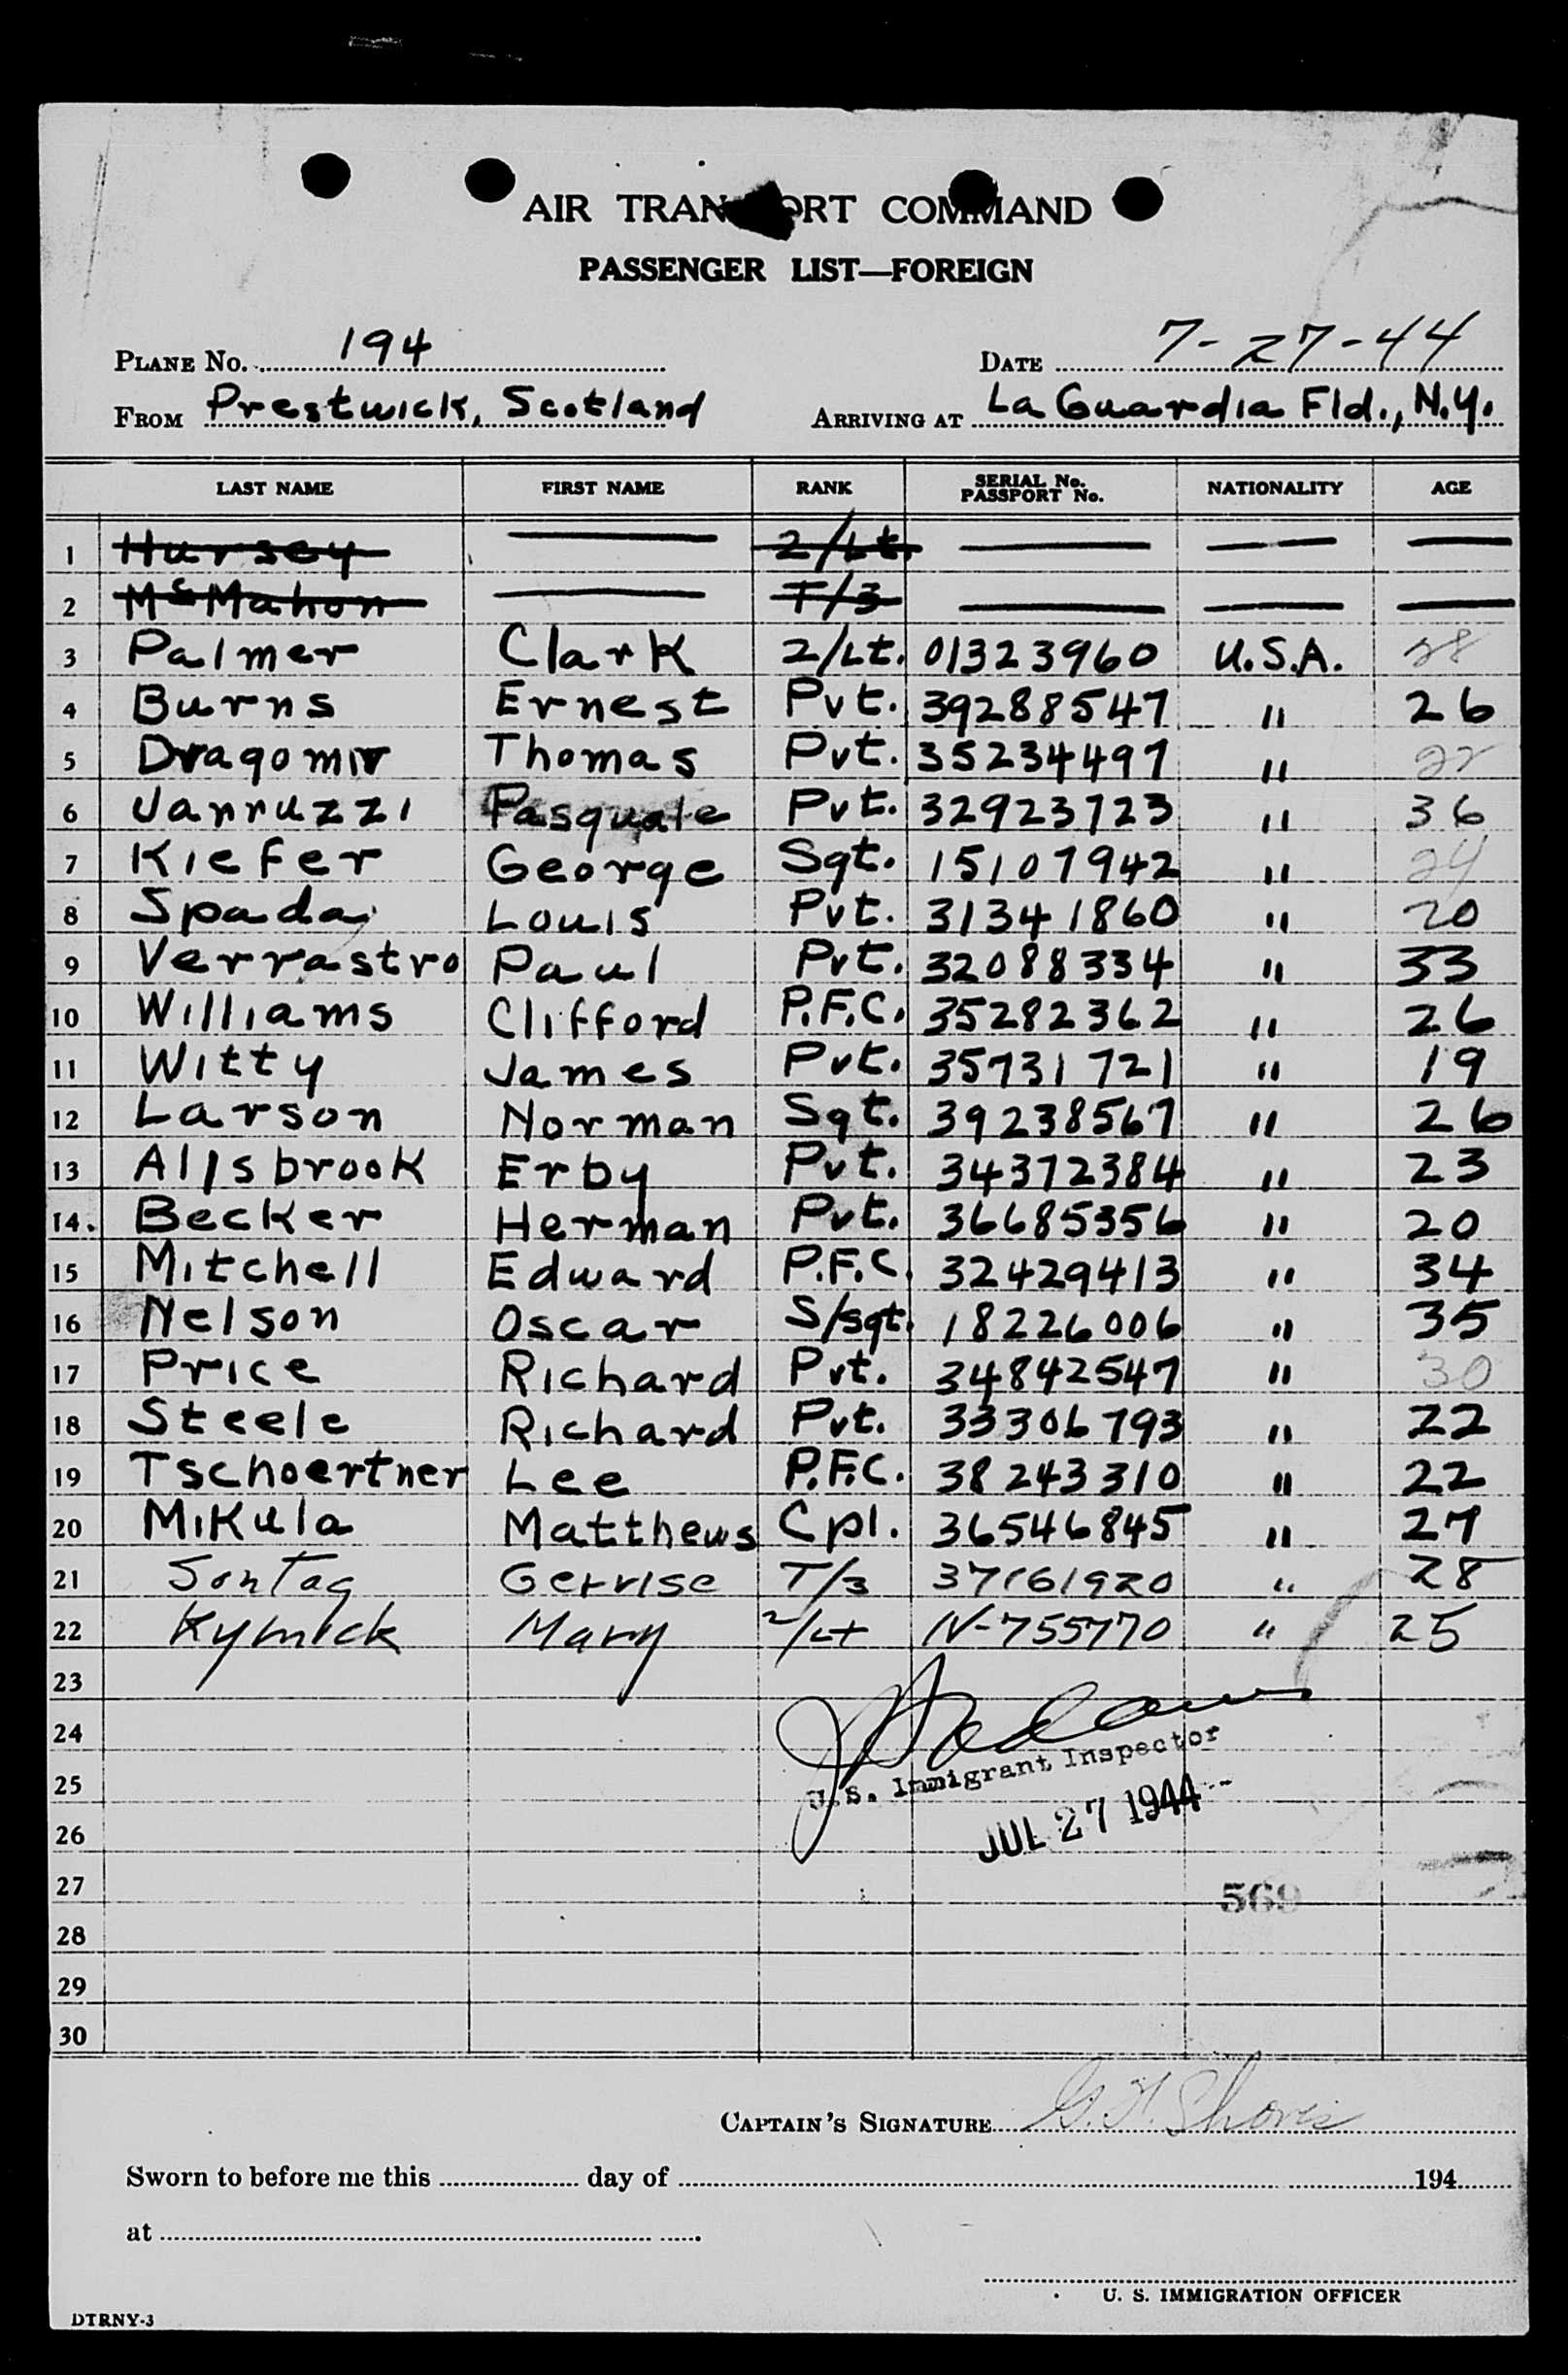 AIR TRANSPORT COMMAND
PASSENGER LIST—FOREIGN
PLANE No. 194 DATE 7-27-44
FROM Prestwick, Scotland ARRIVING AT La Guardia Fld., N.Y.
LAST NAME FIRST NAME RANK SERIAL No. PASSPORT No. NATIONALITY AGE
1 Hursey 2/Lt.
2 McMahon T/3
3 Palmer Clark 2/Lt. 01323960 U.S.A. 28
4 Burns Ernest Pvt. 39288547 " 26
5 Dragomir Thomas Pvt. 35234497 " 22
6 Janruzzi Pasquale Pvt. 32923723 " 36
7 Kiefer George Sgt. 15107942 " 24
8 Spada Louis Pvt. 31341860 " 20
9 Verrastro Paul Pvt. 32088334 " 33
10 Williams Clifford P.F.C. 35282362 " 26
11 Witty James Pvt. 35731721 " 19
12 Larson Norman Sgt. 39238567 " 26
13 Allsbrook Erby Pvt. 34372384 " 23
14. Becker Herman Pvt. 36685356 " 20
15 Mitchell Edward P.F.C. 32429413 " 34
16 Nelson Oscar S/sgt. 18226006 " 35
17 Price Richard Pvt. 34842547 " 30
18 Steele Richard Pvt. 33306793 " 22
19 Tschoertner Lee P.F.C. 38243310 " 22
20 Mikula Matthews Cpl. 36546845 " 27
21 Sontag Gerrise T/3 37161920 " 28
22 Kymick Mary 2/Lt N-755770 " 25
23
24
U.S. Immigrant Inspector
25
JUL 27 1944
26
27 569
28
29
30
CAPTAIN'S SIGNATURE G. H. Shores
Sworn to before me this day of 194
at
U. S. IMMIGRATION OFFICER
DTRNY-3